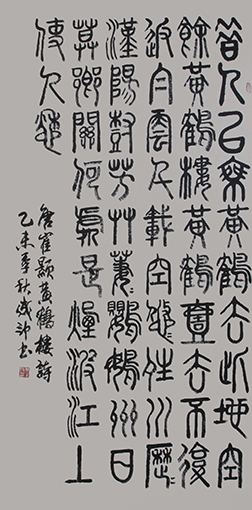 昔人已乘黃鶴去此地空
餘黃鶴樓黃鶴壹去不復
返白雲千載空悠悠晴川歷歷
漢陽樹芳草萋萋鸚鵡洲日
暮鄉關何處是煙波江上
使人愁
唐崔顥黃鶴樓詩
乙未季秋書